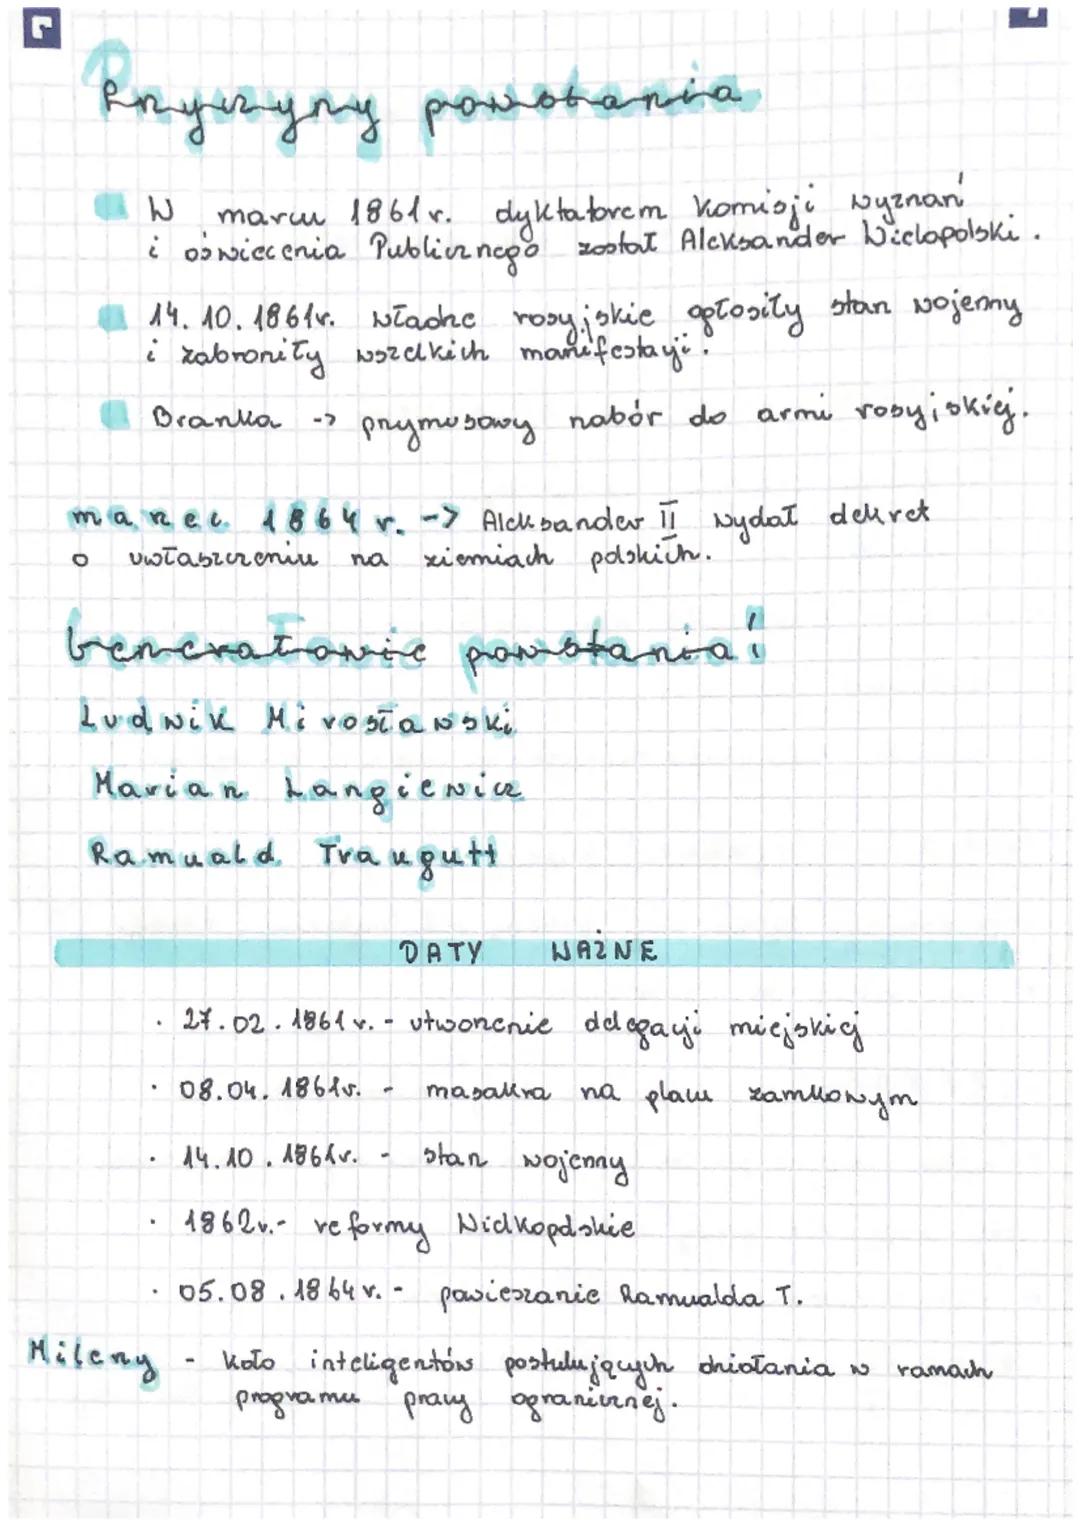 Przyczyny powstania
W marcu 1861r. dyktatorem Komisji wyznań
i oświecenia Publicznego został Aleksander Wielopolski.
14.10.1861r. władze rosyjskie ogłosiły stan wojenny
i zabroniły wszelkich manifestacji.
Branka -> przymusowy nabór do armi rosyjskiej.
marzec 1864 r. -> Aleksander II wydał dekret
o uwłaszczeniu na ziemiach polskich.
Generałowie powstania!
Ludwik Mirosławski
Marian Langiewicz
Ramuald Traugutt
DATY WAŻNE
· 27.02.1861 r. - utworzenie delegacji miejskiej
· 08.04.1861r. - masakra na placu zamkowym
· 14.10.1861r. - stan wojenny
· 1862r.- reformy Wielkopolskie
· 05.08.1864 r. - powieszanie Ramualda T.
Mileny - koło inteligentów postulujących działania w ramach
programu pracy ogranicznej.